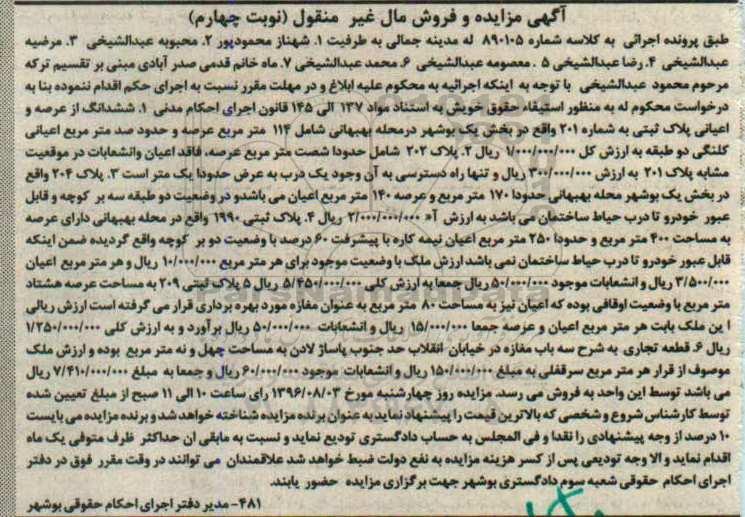 آگهی مزایده و فروش مال غیر منقول (نوبت چهارم)
طبق پرونده اجرائی به کلاسه شماره ۸۹۰۱۰۵ له مدینه جمالی به طرفیت ۱. شهناز محمودپور ۲. محبوبه عبدالشیخی ۳. مرضیه
عبدالشیخی ۴. رضا عبدالشیخی ۵ . معصومه عبدالشیخی ۶. محمد عبدالشیخی ۷. ماه خانم قدمی صدر آبادی مبنی بر تقسیم ترکه
مرحوم محمود عبدالشیخی با توجه به اینکه اجرائیه به محکوم علیه ابلاغ و در مهلت مقرر نسبت به اجرای حکم اقدام ننموده بنا به
درخواست محکوم له به منظور استیفاء حقوق خویش به استناد مواد ۱۳۷ الی ۱۴۵ قانون اجرای احکام مدنی ۱. ششدانگ از عرصه و
اعیانی پلاک ثبتی به شماره ۲۰۱ واقع در بخش یک بوشهر درمحله بهبهانی شامل ۱۱۴ متر مربع عرصه و حدود صد متر مربع اعیانی
کلنگی دو طبقه به ارزش کل ۱/۰۰۰/۰۰۰/۰۰۰ ریال ۲. پلاک ۲۰۲ شامل حدودا شصت متر مربع عرصه، فاقد اعیان وانشعابات در موقعیت
مشابه پلاک ۲۰۱ به ارزش ۳۰۰/۰۰۰/۰۰۰ ریال و تنها راه دسترسی به آن وجود یک درب به عرض حدودا یک متر است ۳. پلاک ۲۰۴ واقع
در بخش یک بوشهر محله بهبهانی حدودا ۱۷۰ متر مربع و عرصه ۱۴۰ متر مربع اعیان می باشدو در وضعیت دو طبقه سه بر کوچه و قابل
عبور خودرو تا درب حیاط ساختمان می باشد به ارزش آ» ۲/۰۰۰/۰۰۰/۰۰۰ ریال ۴. پلاک ثبتی ۱۹۹۰ واقع در محله بهبهانی دارای عرصه
به مساحت ۴۰۰ متر مربع و حدودا ۲۵۰ متر مربع اعیان نیمه کاره با پیشرفت ۶۰ درصد با وضعیت دو بر کوچه واقع گردیده ضمن اینکه
قابل عبور خودرو تا درب حیاط ساختمان نمی باشد ارزش ملک با وضعیت موجود برای هر متر مربع ۱۰/۰۰۰/۰۰۰ ریال و هر متر مربع اعیان
۳/۵۰۰/۰۰۰ ریال و انشعابات موجود ۵۰/۰۰۰/۰۰۰ ریال جمعا به ارزش کلی ۵/۴۵۰/۰۰۰/۰۰۰ ریال ۵ پلاک ثبتی ۲۰۹ به مساحت عرصه هشتاد
متر مربع با وضعیت اوقافی بوده که اعیان نیز به مساحت ۸۰ متر مربع به عنوان مغازه مورد بهره برداری قرار می گرفته است ارزش ریالی
ا ین ملک بابت هر متر مربع اعیان و عرصه جمعا ۱۵/۰۰۰/۰۰۰ ریال و انشعابات ۵۰/۰۰۰/۰۰۰ ریال برآورد و به ارزش کلی ۱/۲۵۰/۰۰۰/۰۰۰
ریال ۶. قطعه تجاری به شرح سه باب مغازه در خیابان انقلاب حد جنوب پاساژ لادن به مساحت چهل و نه متر مربع بوده و ارزش ملک
موصوف از قرار هر متر مربع سرقفلی به مبلغ ۱۵۰/۰۰۰/۰۰۰ ریال و انشعابات موجود ۶۰/۰۰۰/۰۰۰ ریال و جمعا به مبلغ ۷/۴۱۰/۰۰۰/۰۰۰ ریال
می باشد توسط این واحد به فروش می رسد. مزایده روز چهارشنبه مورخ ۱۳۹۶/۰۸/۰۳ رای ساعت ۱۰ الی ۱۱ صبح از مبلغ تعیین شده
توسط کارشناس شروع و شخصی که بالاترین قیمت را پیشنهاد نماید به عنوان برنده مزایده شناخته خواهد شد و برنده مزایده می بایست
۱۰ درصد از وجه پیشنهادی را نقدا و فی المجلس به حساب دادگستری تودیع نماید و نسبت به مابقی ان حداکثر ظرف متوفی یک ماه
اقدام نماید و الا وجه تودیعی پس از کسر هزینه مزایده به نفع دولت ضبط خواهد شد علاقمندان می توانند در وقت مقرر فوق در دفتر
اجرای احکام حقوقی شعبه سوم دادگستری بوشهر جهت برگزاری مزایده حضور یابند.
۴۸۱- مدیر دفتر اجرای احکام حقوقی بوشهر